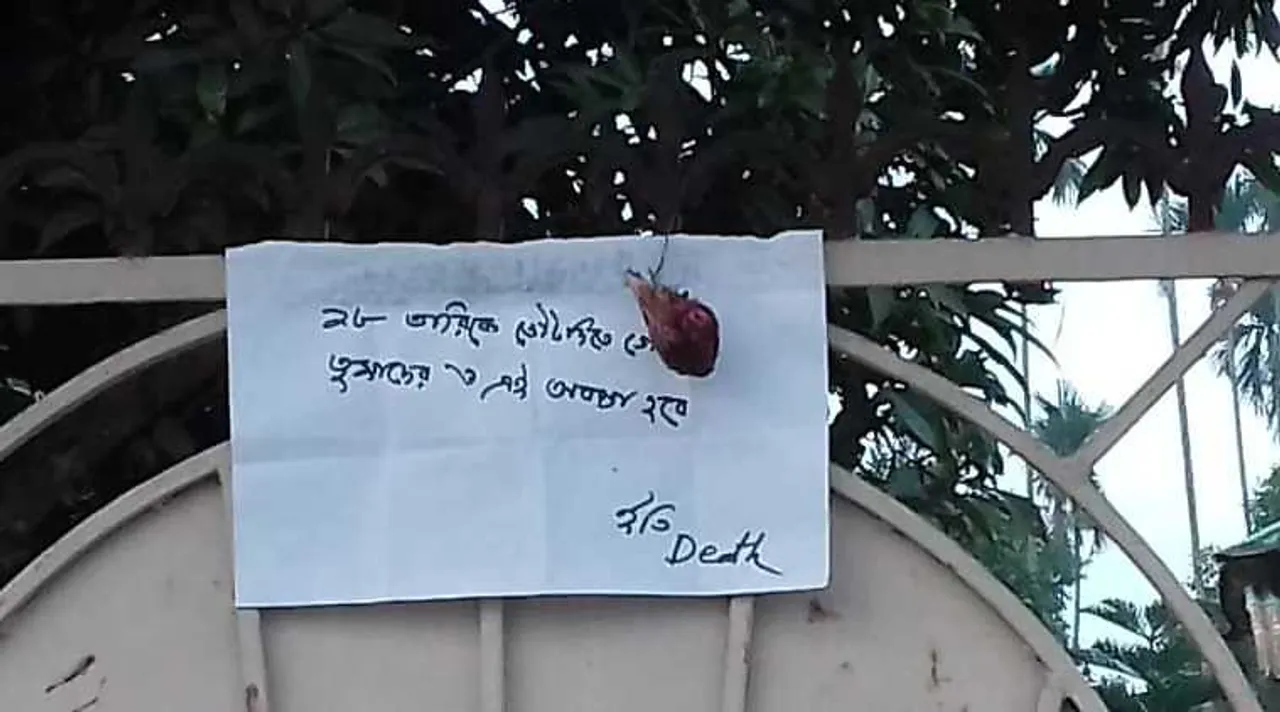 ২৮ তারিকে ভোটদিতে
তুমাদের ও এই অবস্থা হবে
ইতি
Death